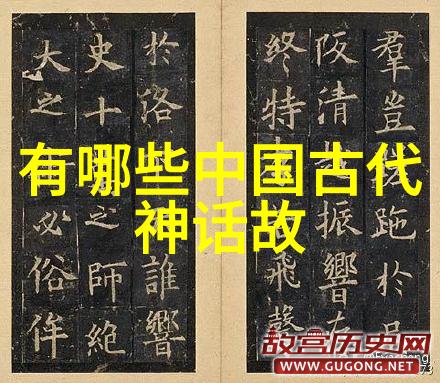 羣豈跎於
阪清振響
終特飛
於洛誰響
史十之師絕
大之必俗侔
有哪些中国古代
神话故
故宫历史网
WWW.GUGONG.NET
73